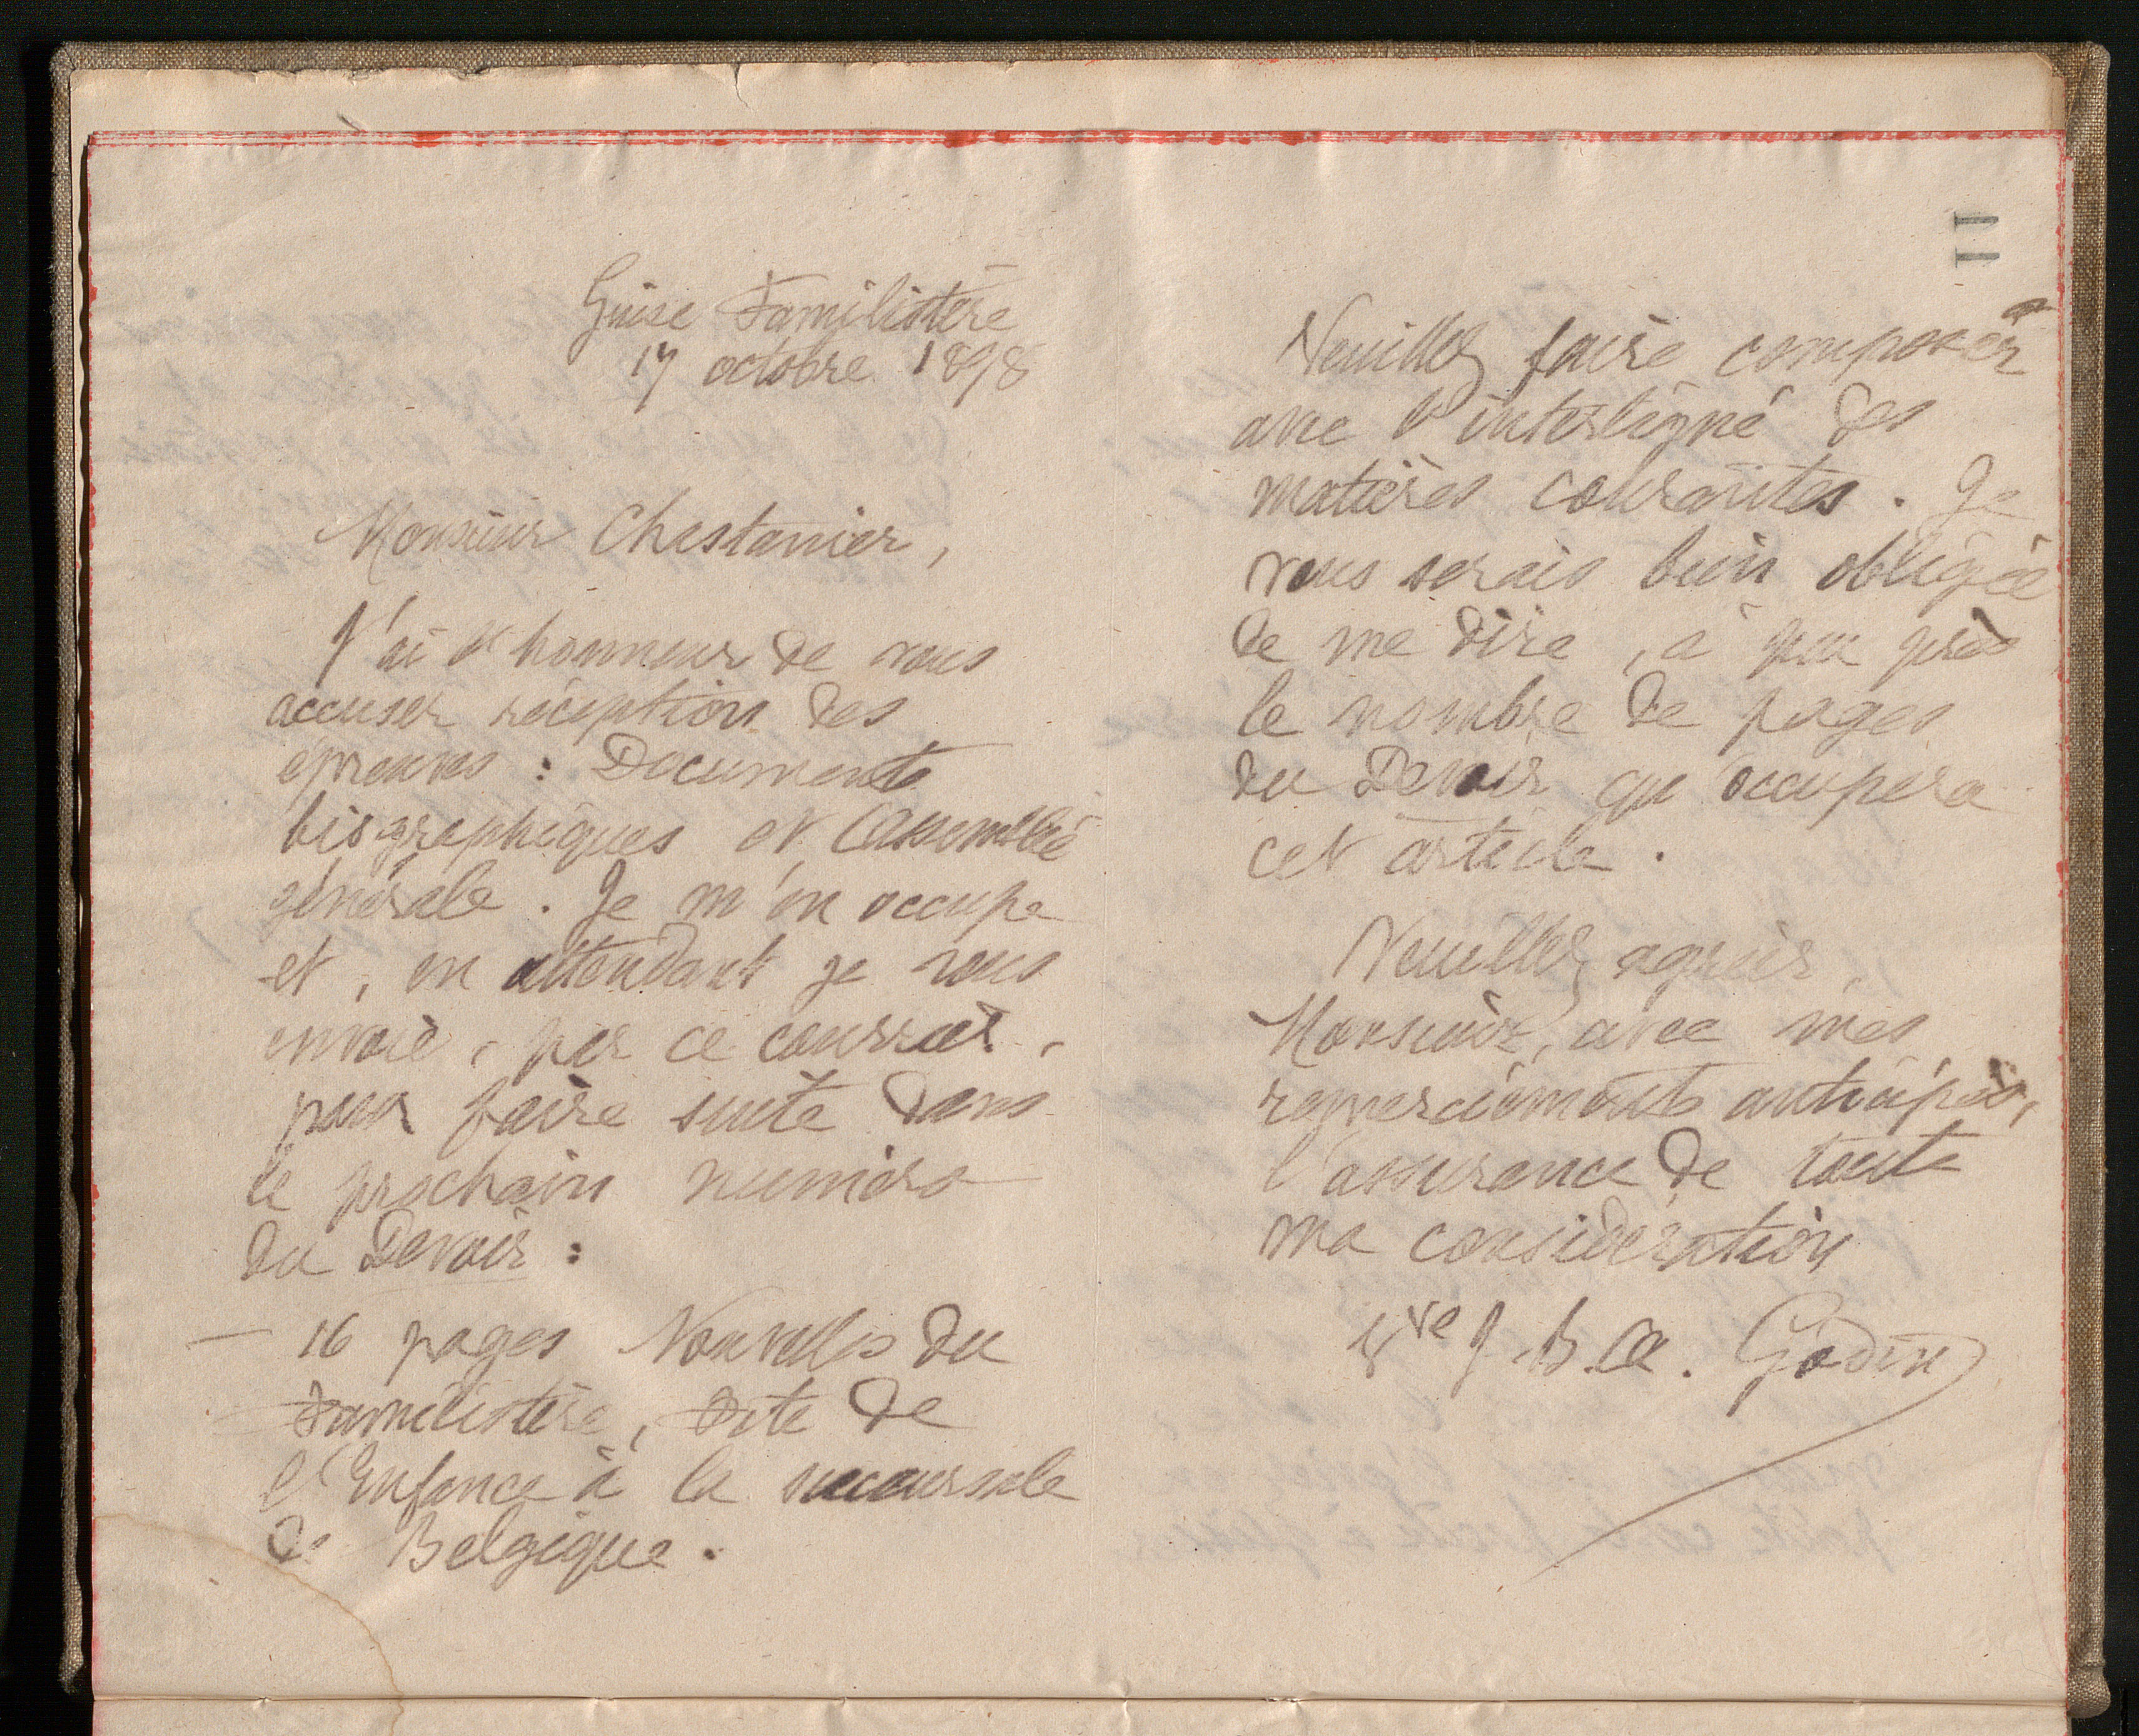 Guise Familistère
17 octobre 1898
Monsieur Chastanier,
J'ai l'honneur de vous
accuser réception des
épreuves : Documents
biographiques et Assemblée
générale. Je m'en occupe
et, en attendant je vous
envoie, par ce courrier,
pour faire suite dans
le prochain numéro
du Devoir :
— 16 pages Nouvelles du
Familistère, Fête de
l'Enfance à la succursale
de Belgique.
11
Veuillez faire composer
avec l'interligne des
matières courantes. Je
vous serais bien obligée
de me dire, à peu près
le nombre de pages
du Devoir qu'occupera
cet article.
Veuillez agréer,
Monsieur, avec mes
remerciements anticipés,
l'assurance de toute
ma considération
Vve J. B. A. Godin